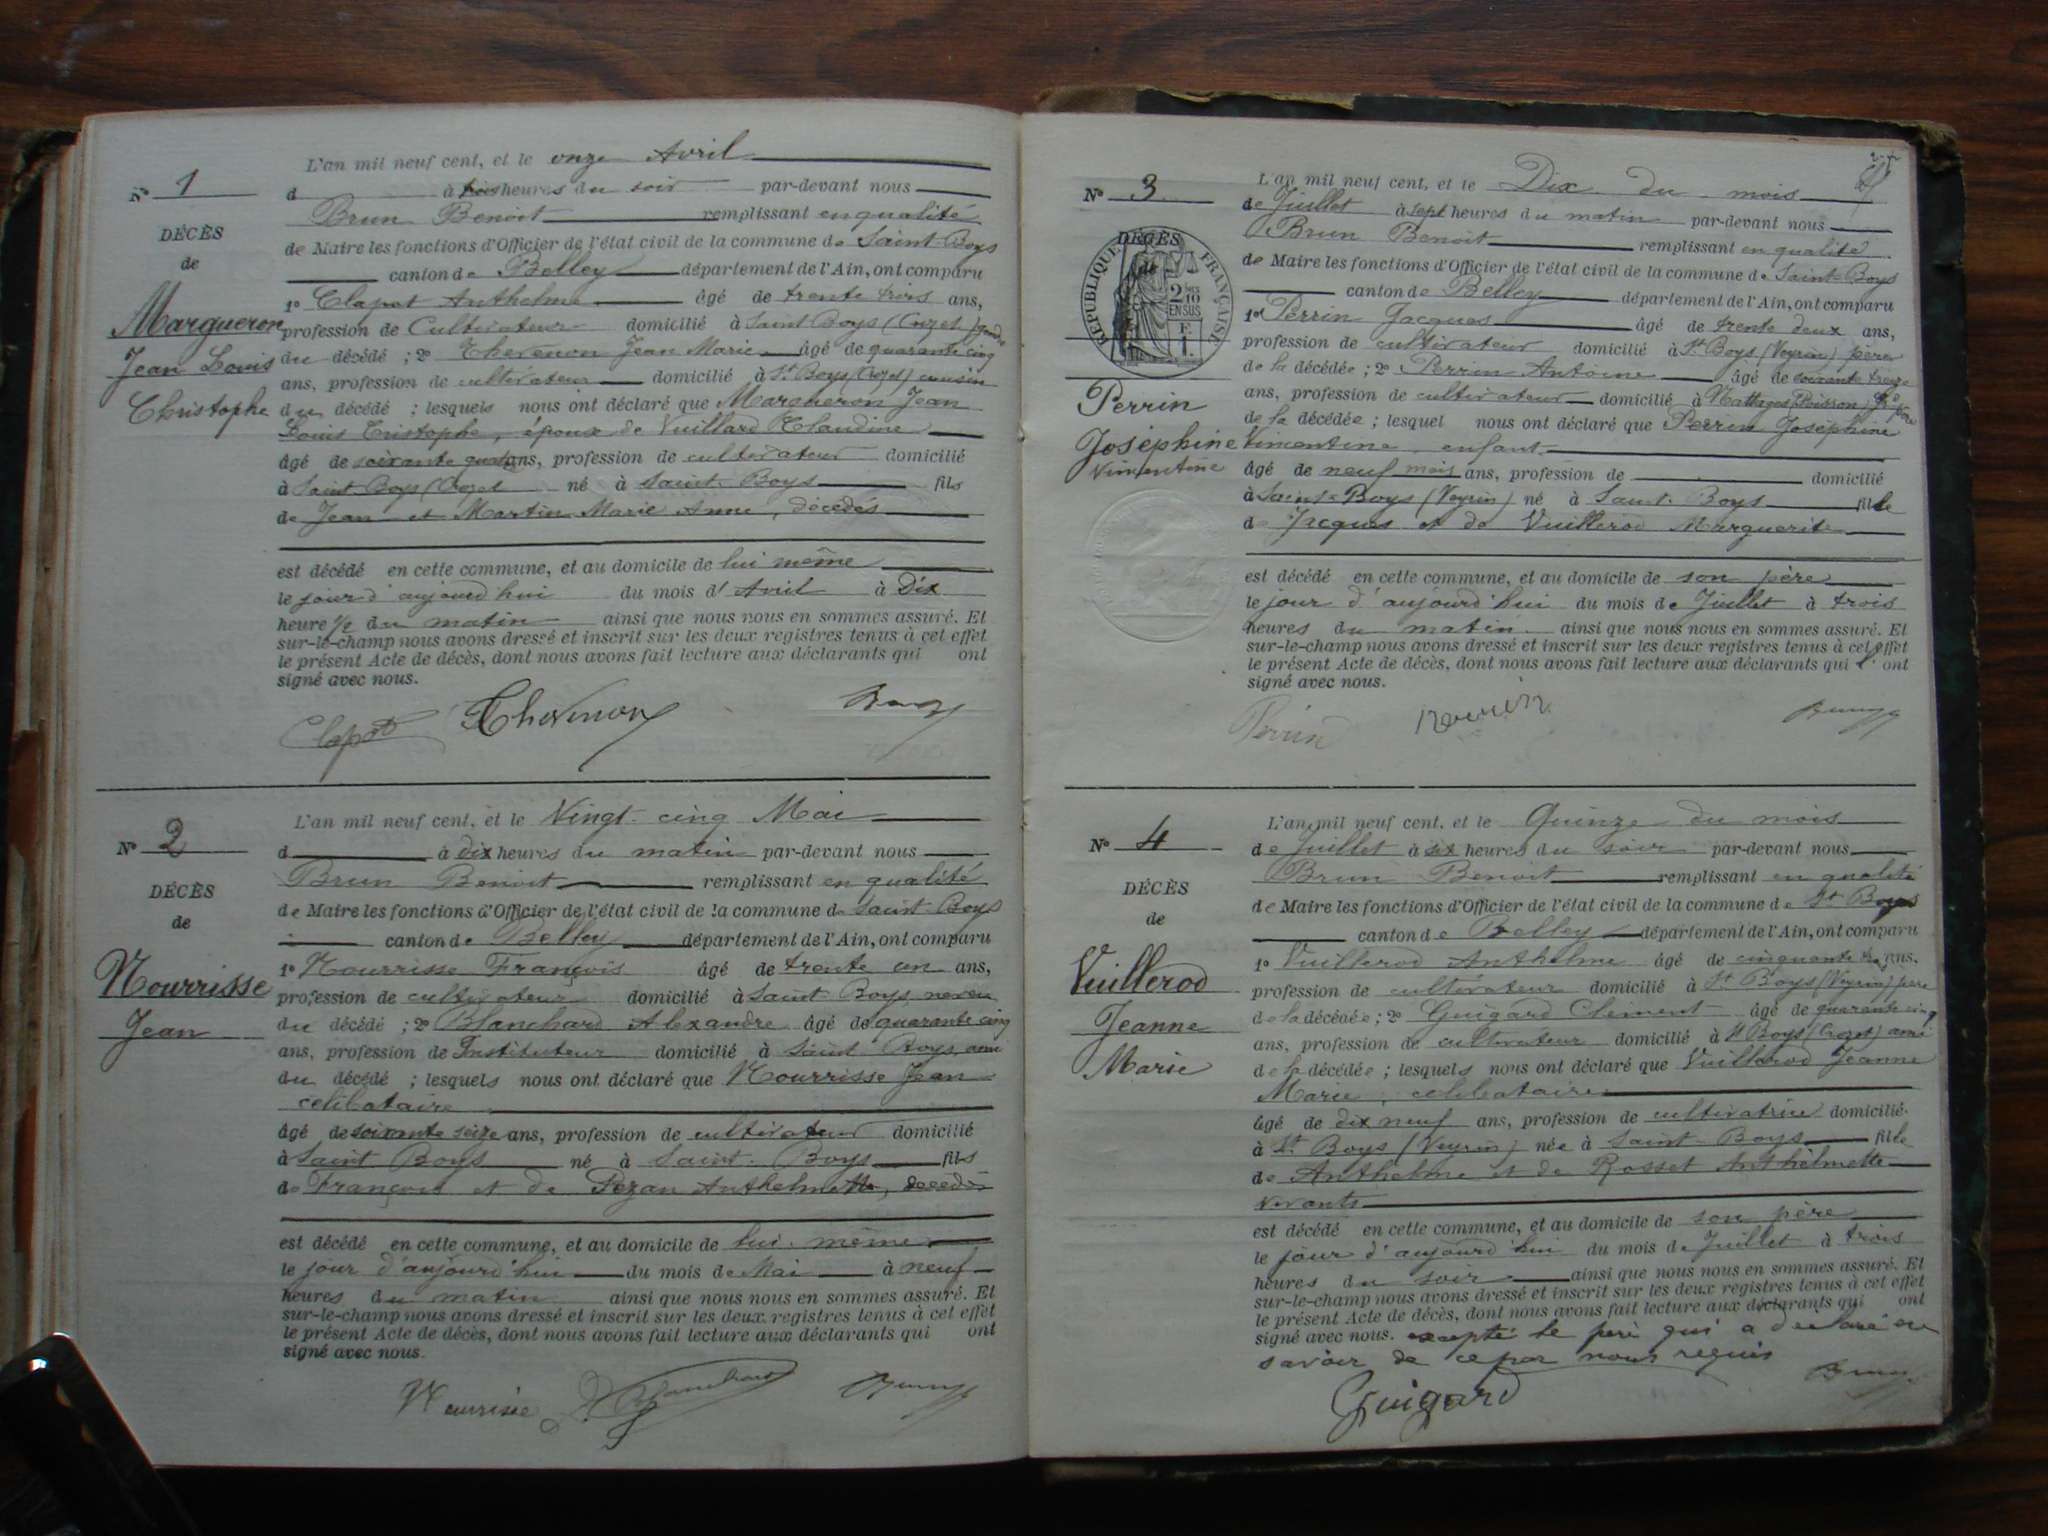 N° 1
DÉCÈS
de
Margueron
Jean Louis
Christophe
L'an mil neuf cent, et le onze Avril
d à trois heures du soir par-devant nous
Brun Benoit remplissant en qualité
de Maire les fonctions d'Officier de l'état civil de la commune de Saint-Boys
canton de Belley département de l'Ain, ont comparu
1° Clapot Anthelme âgé de trente trois ans,
profession de Cultivateur domicilié à Saint Boys (Crozet) gendre
du décédé ; 2° Thevenon Jean Marie âgé de quarante cinq
ans, profession de cultivateur domicilié à St Boys (Crozet) cousin
du décédé ; lesquels nous ont déclaré que Margueron Jean
Louis Cristophe, époux de Vuillard Claudine
âgé de soixante quatre ans, profession de cultivateur domicilié
à Saint Boys (Crozet né à Saint-Boys fils
de Jean et Martin Marie Anne, décédés
est décédé en cette commune, et au domicile de lui même
le jour d'aujourd'hui du mois d'Avril à Dix
heure ½ du matin ainsi que nous nous en sommes assuré. Et
sur-le-champ nous avons dressé et inscrit sur les deux registres tenus à cet effet
le présent Acte de décès, dont nous avons fait lecture aux déclarants qui ont
signé avec nous.
Clapot Thevenon Brun
N° 2
DÉCÈS
de
Nourrisse
Jean
L'an mil neuf cent, et le Vingt-cinq Mai
d à dix heures du matin par-devant nous
Brun Benoit remplissant en qualité
de Maire les fonctions d'Officier de l'état civil de la commune de Saint Boys
canton de Belley département de l'Ain, ont comparu
1° Nourrisse François âgé de trente un ans,
profession de cultivateur domicilié à Saint Boys neveu
du décédé ; 2° Blanchard Alexandre âgé de quarante cinq
ans, profession de Instituteur domicilié à Saint Boys, ami
du décédé ; lesquels nous ont déclaré que Nourrisse Jean
celibataire
âgé de soixante seize ans, profession de cultivateur domicilié
à Saint Boys né à Saint-Boys fils
de François et de Pezan Anthelmette, decedés
est décédé en cette commune, et au domicile de lui-même
le jour d'aujourd'hui du mois de Mai à neuf
heures du matin ainsi que nous nous en sommes assuré. Et
sur-le-champ nous avons dressé et inscrit sur les deux registres tenus à cet effet
le présent Acte de décès, dont nous avons fait lecture aux déclarants qui ont
signé avec nous.
Nourrisse Blanchard Brun
N° 3
DÉCÈS
de
RÉPUBLIQUE FRANÇAISE
2/10
EN SUS
Perrin
Joséphine
Vimentine
L'an mil neuf cent, et le Dix du mois
de Juillet à sept heures du matin par-devant nous
Brun Benoit remplissant en qualité
de Maire les fonctions d'Officier de l'état civil de la commune de Saint-Boys
canton de Belley département de l'Ain, ont comparu
1° Perrin Jacques âgé de trente deux ans,
profession de cultivateur domicilié à St Boys (Veyrin) père
de la décédée ; 2° Perrin Antoine âgé de soixante treize
ans, profession de cultivateur domicilié à Nattages (Poisson) Gd père
de la décédée ; lesquel nous ont déclaré que Perrin Joséphine
Vimentine, enfant
âgé de neuf mois ans, profession de domicilié
à Saint-Boys (Veyrin) né à Saint-Boys fille
de Jacques et de Vuillerod Marguerite
est décédé en cette commune, et au domicile de son père
le jour d'aujourd'hui du mois de Juillet à trois
heures du matin ainsi que nous nous en sommes assuré. Et
sur-le-champ nous avons dressé et inscrit sur les deux registres tenus à cet effet
le présent Acte de décès, dont nous avons fait lecture aux déclarants qui l' ont
signé avec nous.
Perrin Brun
N° 4
DÉCÈS
de
Vuillerod
Jeanne
Marie
L'an mil neuf cent, et le Quinze du mois
de Juillet à six heures du soir par-devant nous
Brun Benoit remplissant en qualité
de Maire les fonctions d'Officier de l'état civil de la commune de St Boys
canton de Belley département de l'Ain, ont comparu
1° Vuillerod Anthelme âgé de cinquante ans,
profession de cultivateur domicilié à St Boys (Veyrin) père
de la décédée ; 2° Guigard Clément âgé de quarante cinq
ans, profession de cultivateur domicilié à St Boys (Crozet) ami
de la décédée ; lesquels nous ont déclaré que Vuillerod Jeanne
Marie, celibataire
âgé de dix neuf ans, profession de cultivatrice domicilié
à St Boys (Veyrin) née à Saint-Boys fille
de Anthelme et de Rosset Anthelmette
vivants
est décédé en cette commune, et au domicile de son père
le jour d'aujourd'hui du mois de Juillet à trois
heures du soir ainsi que nous nous en sommes assuré. Et
sur-le-champ nous avons dressé et inscrit sur les deux registres tenus à cet effet
le présent Acte de décès, dont nous avons fait lecture aux déclarants qui ont
signé avec nous. excepté le père qui a declaré ne
savoir de ce par nous requis
Guigard Brun